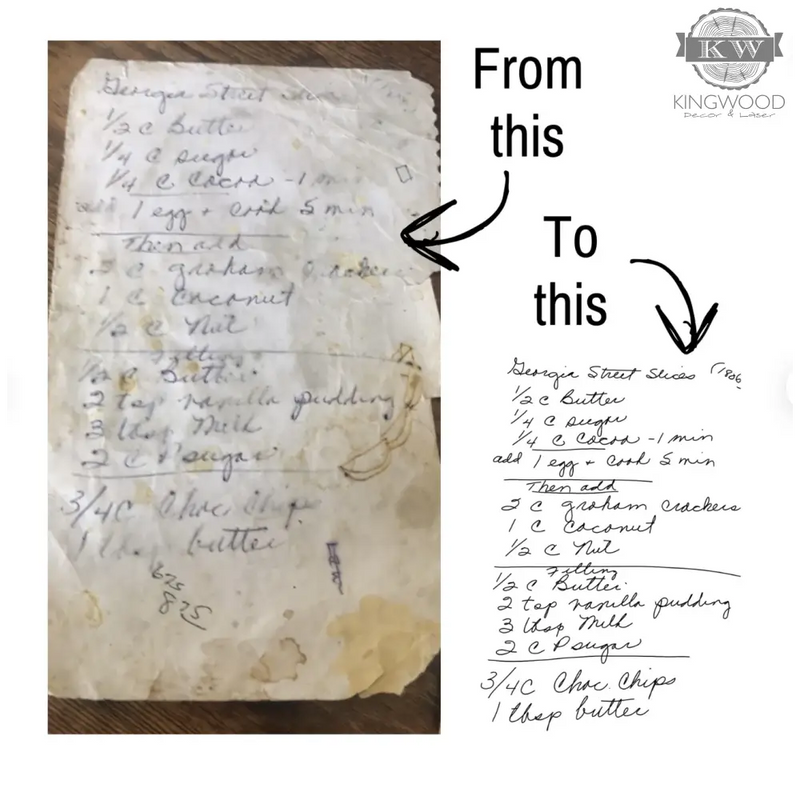 KW
KINGWOOD
Decor & Laser
From
this
To
this
Georgia Street Slices
1/2 C Butter
1/4 C sugar
1/4 C Cocoa - 1 min
add 1 egg + Cook 5 min
Then add
2 C graham crackers
1 C Coconut
1/2 C Nut
Filling
1/2 C Butter
2 tsp vanilla pudding
3 tbsp Milk
2 C P sugar
3/4 C Choc Chips
1 tbsp butter
675
875
Georgia Street Slices
1/2 C Butter
1/4 C sugar
1/4 C Cocoa - 1 min
add 1 egg + Cook 5 min
Then add
2 C graham crackers
1 C Coconut
1/2 C Nut
Filling
1/2 C Butter
2 tsp vanilla pudding
3 tbsp Milk
2 C P sugar
3/4 C Choc. Chips
1 tbsp butter